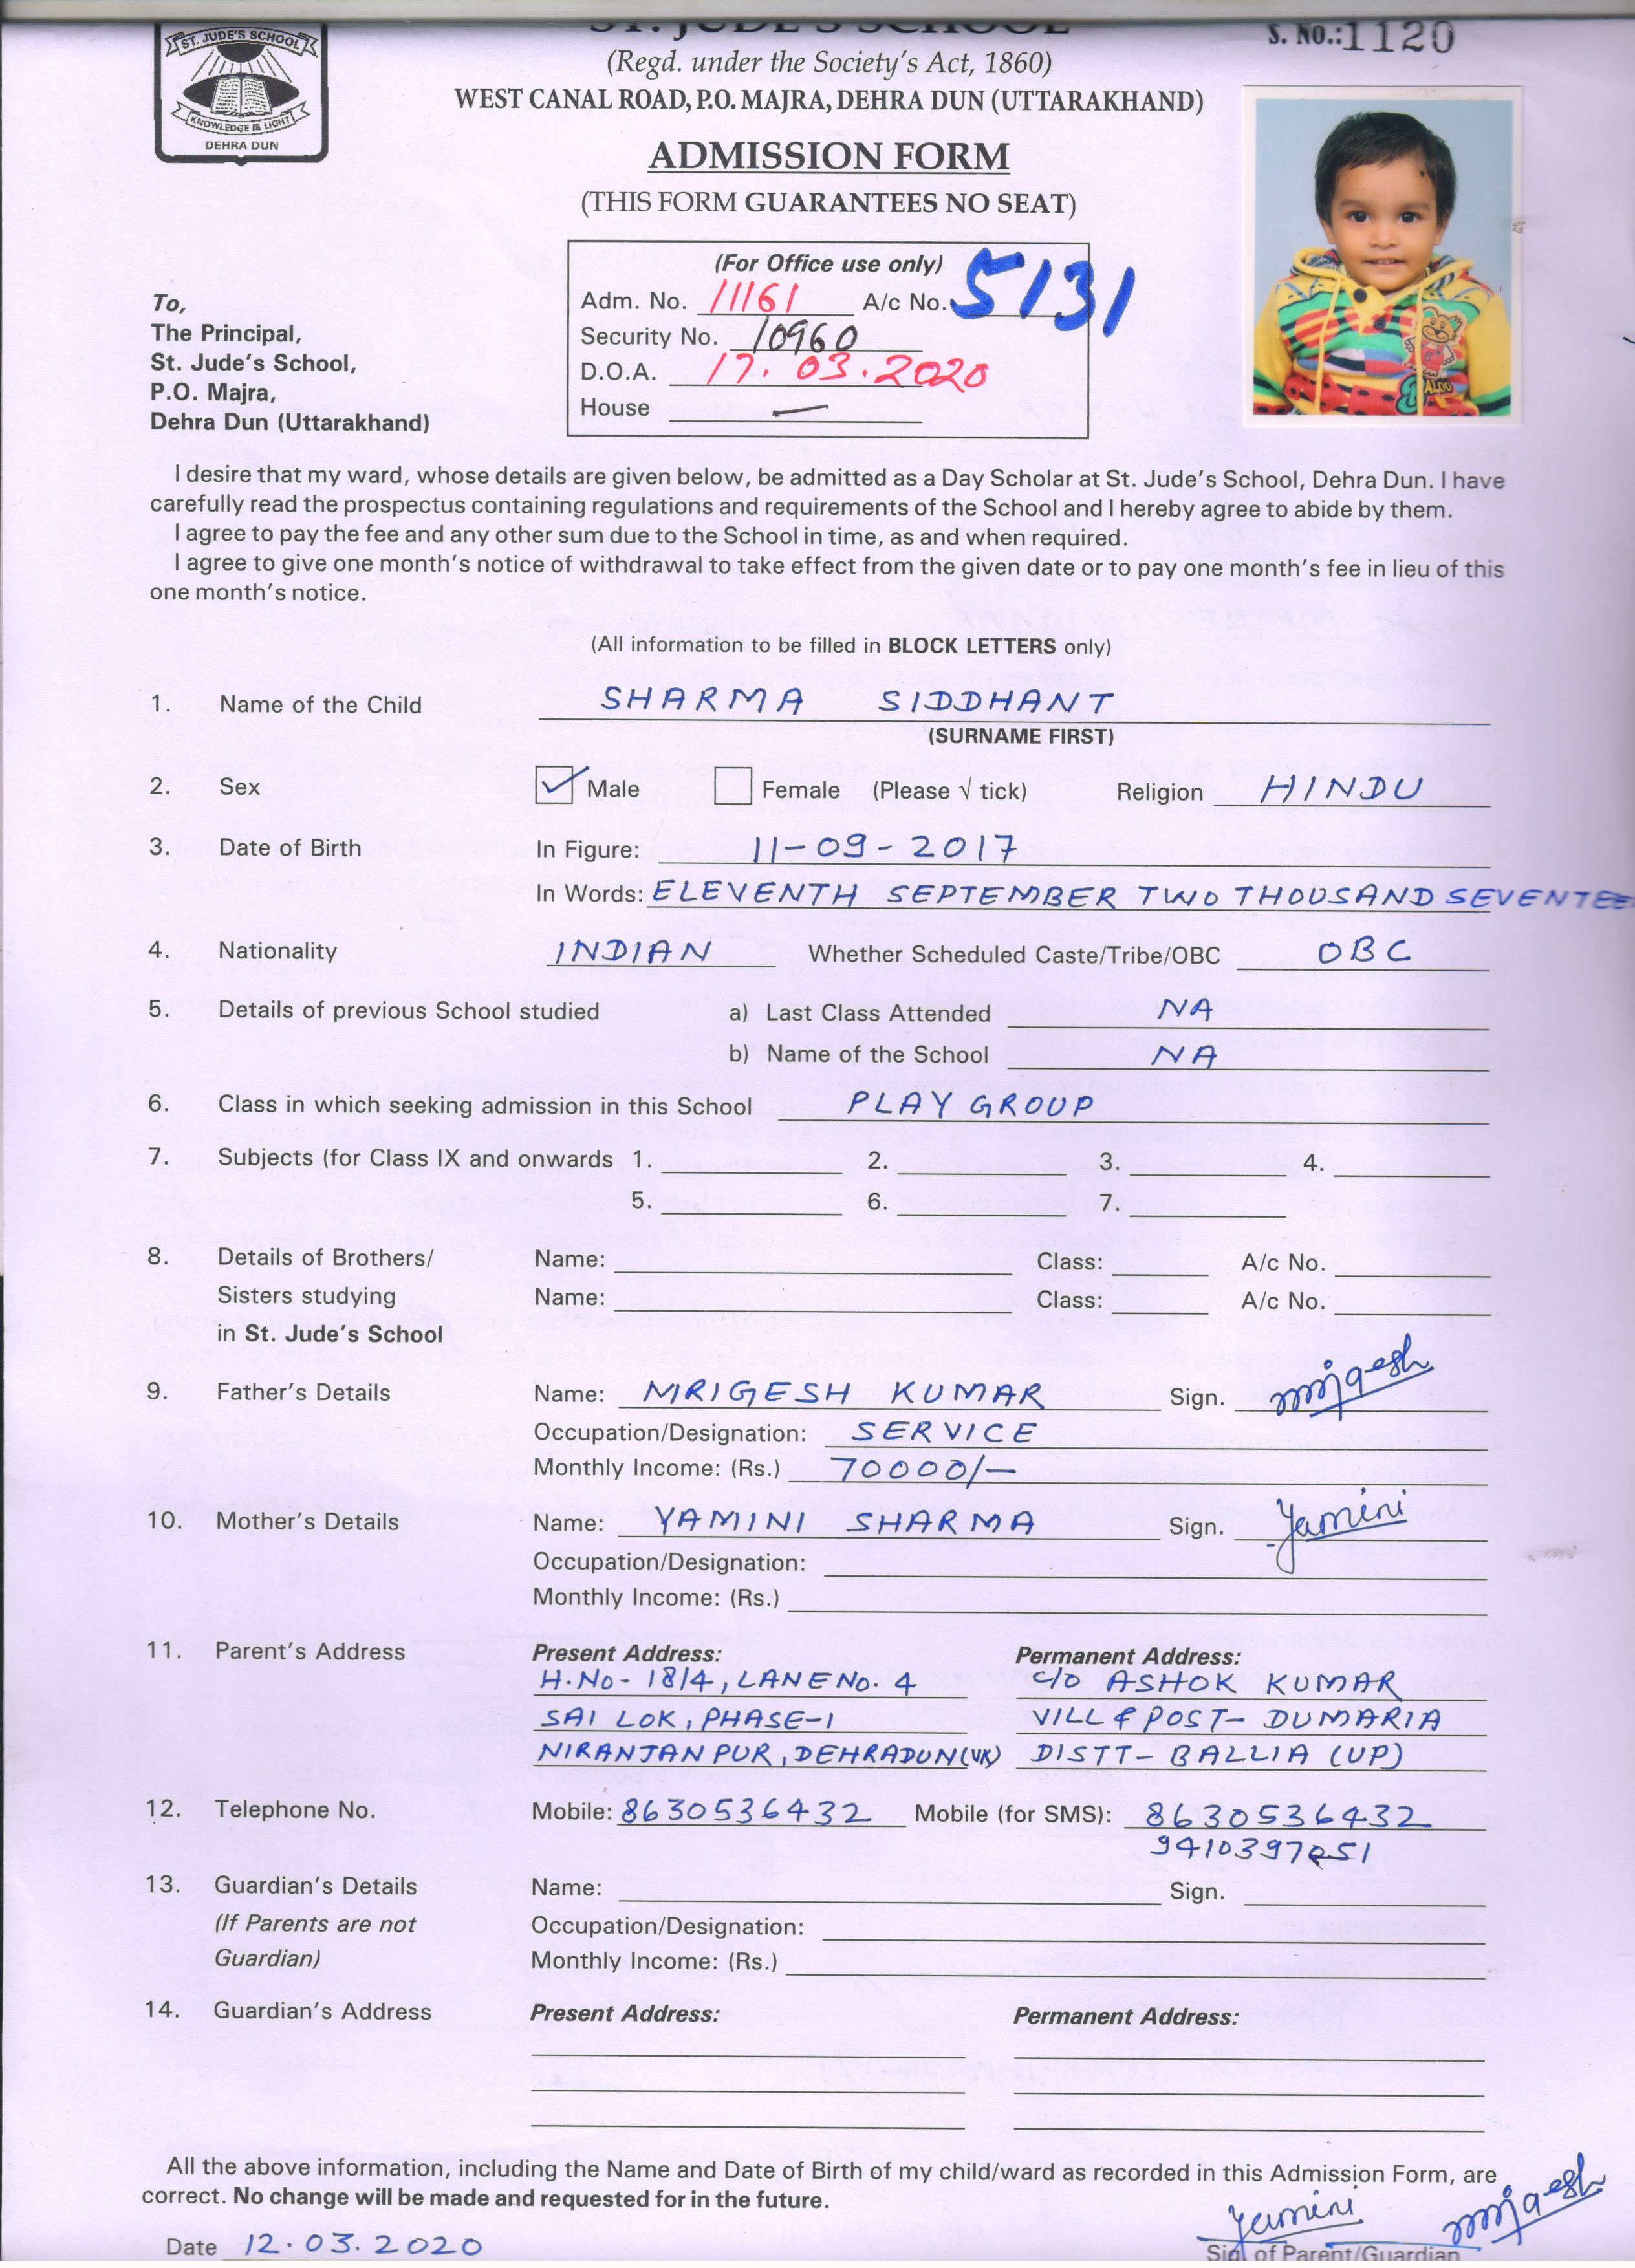 ST. JUDE'S SCHOOL
KNOWLEDGE IS LIGHT
DEHRA DUN
ST. JUDE'S SCHOOL
S. NO.:1120
(Regd. under the Society's Act, 1860)
WEST CANAL ROAD, P.O. MAJRA, DEHRA DUN (UTTARAKHAND)
ADMISSION FORM
(THIS FORM GUARANTEES NO SEAT)
(For Office use only)
Adm. No. 11161 A/c No. 5131
Security No. 10960
D.O.A. 17.03.2020
House —
To,
The Principal,
St. Jude's School,
P.O. Majra,
Dehra Dun (Uttarakhand)
I desire that my ward, whose details are given below, be admitted as a Day Scholar at St. Jude's School, Dehra Dun. I have
carefully read the prospectus containing regulations and requirements of the School and I hereby agree to abide by them.
I agree to pay the fee and any other sum due to the School in time, as and when required.
I agree to give one month's notice of withdrawal to take effect from the given date or to pay one month's fee in lieu of this
one month's notice.
(All information to be filled in BLOCK LETTERS only)
1. Name of the Child SHARMA SIDDHANT
(SURNAME FIRST)
2. Sex ✓ Male Female (Please √ tick) Religion HINDU
3. Date of Birth In Figure: 11-09-2017
In Words: ELEVENTH SEPTEMBER TWO THOUSAND SEVENTEE
4. Nationality INDIAN Whether Scheduled Caste/Tribe/OBC OBC
5. Details of previous School studied a) Last Class Attended NA
b) Name of the School NA
6. Class in which seeking admission in this School PLAY GROUP
7. Subjects (for Class IX and onwards 1. 2. 3. 4.
5. 6. 7.
8. Details of Brothers/ Name: Class: A/c No.
Sisters studying Name: Class: A/c No.
in St. Jude's School
9. Father's Details Name: MRIGESH KUMAR Sign. mrigesh
Occupation/Designation: SERVICE
Monthly Income: (Rs.) 70000/-
10. Mother's Details Name: YAMINI SHARMA Sign. Yamini
Occupation/Designation:
Monthly Income: (Rs.)
11. Parent's Address Present Address: Permanent Address:
H.No- 18/4, LANE No. 4 C/O ASHOK KUMAR
SAI LOK, PHASE-1 VILL & POST- DUMARIA
NIRANJANPUR, DEHRADUN(UK) DISTT- BALLIA (UP)
12. Telephone No. Mobile: 8630536432 Mobile (for SMS): 8630536432
13. Guardian's Details Name: Sign.
(If Parents are not Occupation/Designation:
Guardian) Monthly Income: (Rs.)
14. Guardian's Address Present Address: Permanent Address:
All the above information, including the Name and Date of Birth of my child/ward as recorded in this Admission Form, are
correct. No change will be made and requested for in the future.
Yamini mrigesh
Date 12.03.2020 Sig. of Parent/Guardian